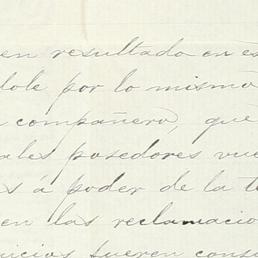 en resultado en es
dole por lo mismo
compañero, que
ales posedores vue
s á poder de la t
en las reclamacio
uicios fueren cons